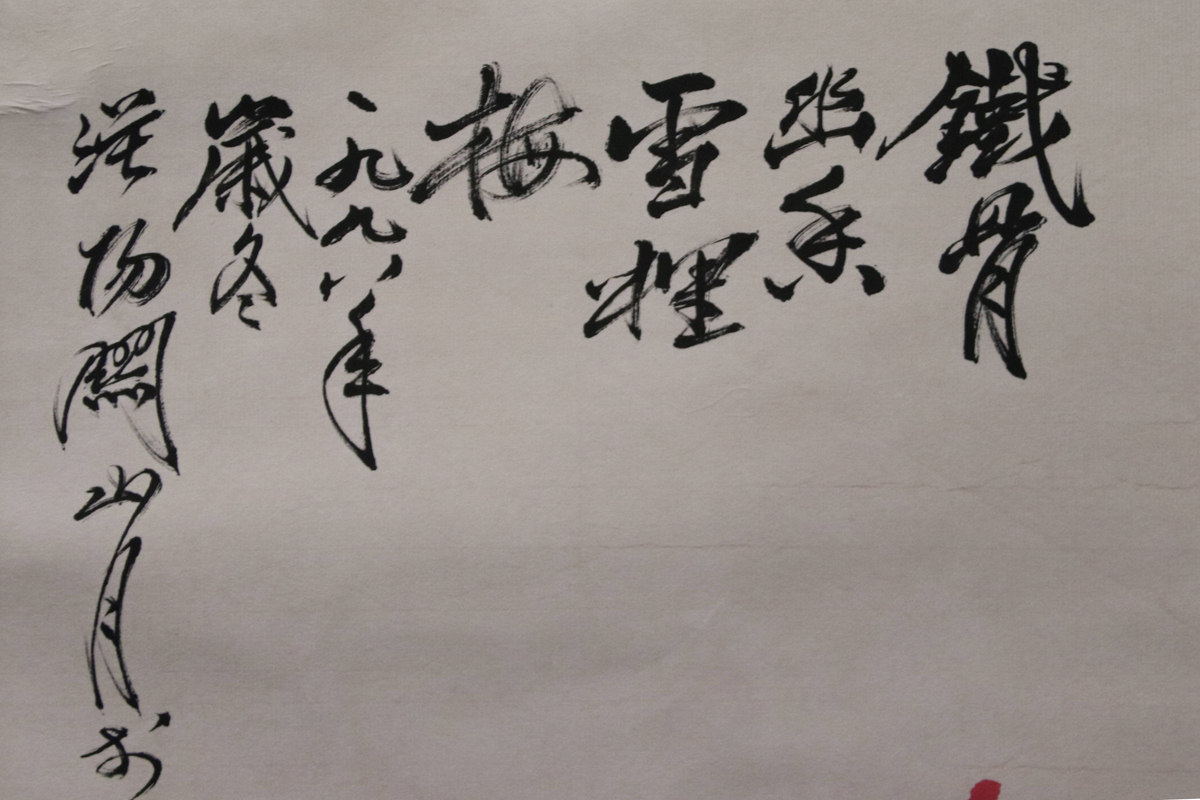 鐵骨
幽香
雪裡
梅
一九九八年
歲冬
漠陽關山月於